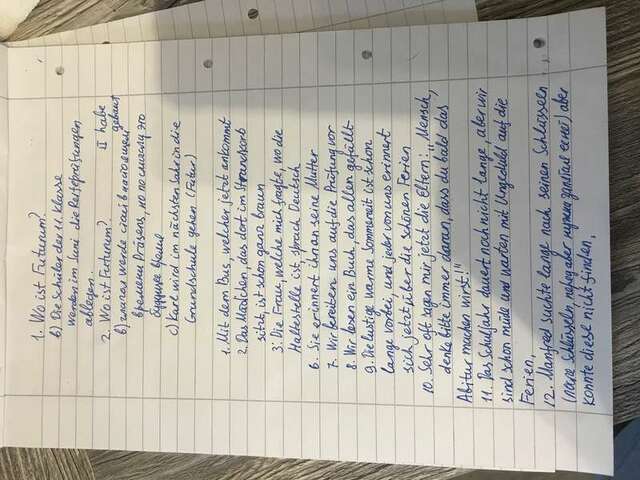 1. Wo ist Futurum?
b) Die Schüler der 11 Klasse
werden im Juni die Testeprüfungen
ablegen.
2. Wo ist Futurum? II habe
b) глагол werde стоит в настоящем gebaut
времени Präsens, но по смыслу это
будущее время
c) Karl wird im nächsten Jahr in die
Grundschule gehen (Futur)
1. Mit dem Bus, welcher jetzt ankommt
2. Das Mädchen, das dort im Strandkorb
sitzt, ist schon ganz braun
3. Die Frau, welche mich fragte, wo die
Haltestelle ist, sprach Deutsch
6. Sie erinnert ihn an seine Mutter
7. Wir bereiten uns auf die Prüfung vor
8. Wir lesen ein Buch, das allen gefällt
9. Die lustige warme Sommerzeit ist schon
lange vorbei, und jeder von uns erinnert
sich jetzt über die schönen Ferien
10. Sehr oft sagen mir jetzt die Eltern: "Mensch,
denke bitte immer daran, dass du bald das
Abitur machen wirst!"
11. Das Schuljahr dauert noch nicht lange, aber wir
sind schon müde und warten mit Ungeduld auf die
Ferien.
12. Manfred suchte lange nach seinen Schlüsseln
(перед Schlüsseln нужен) aber
konnte diese nicht finden.